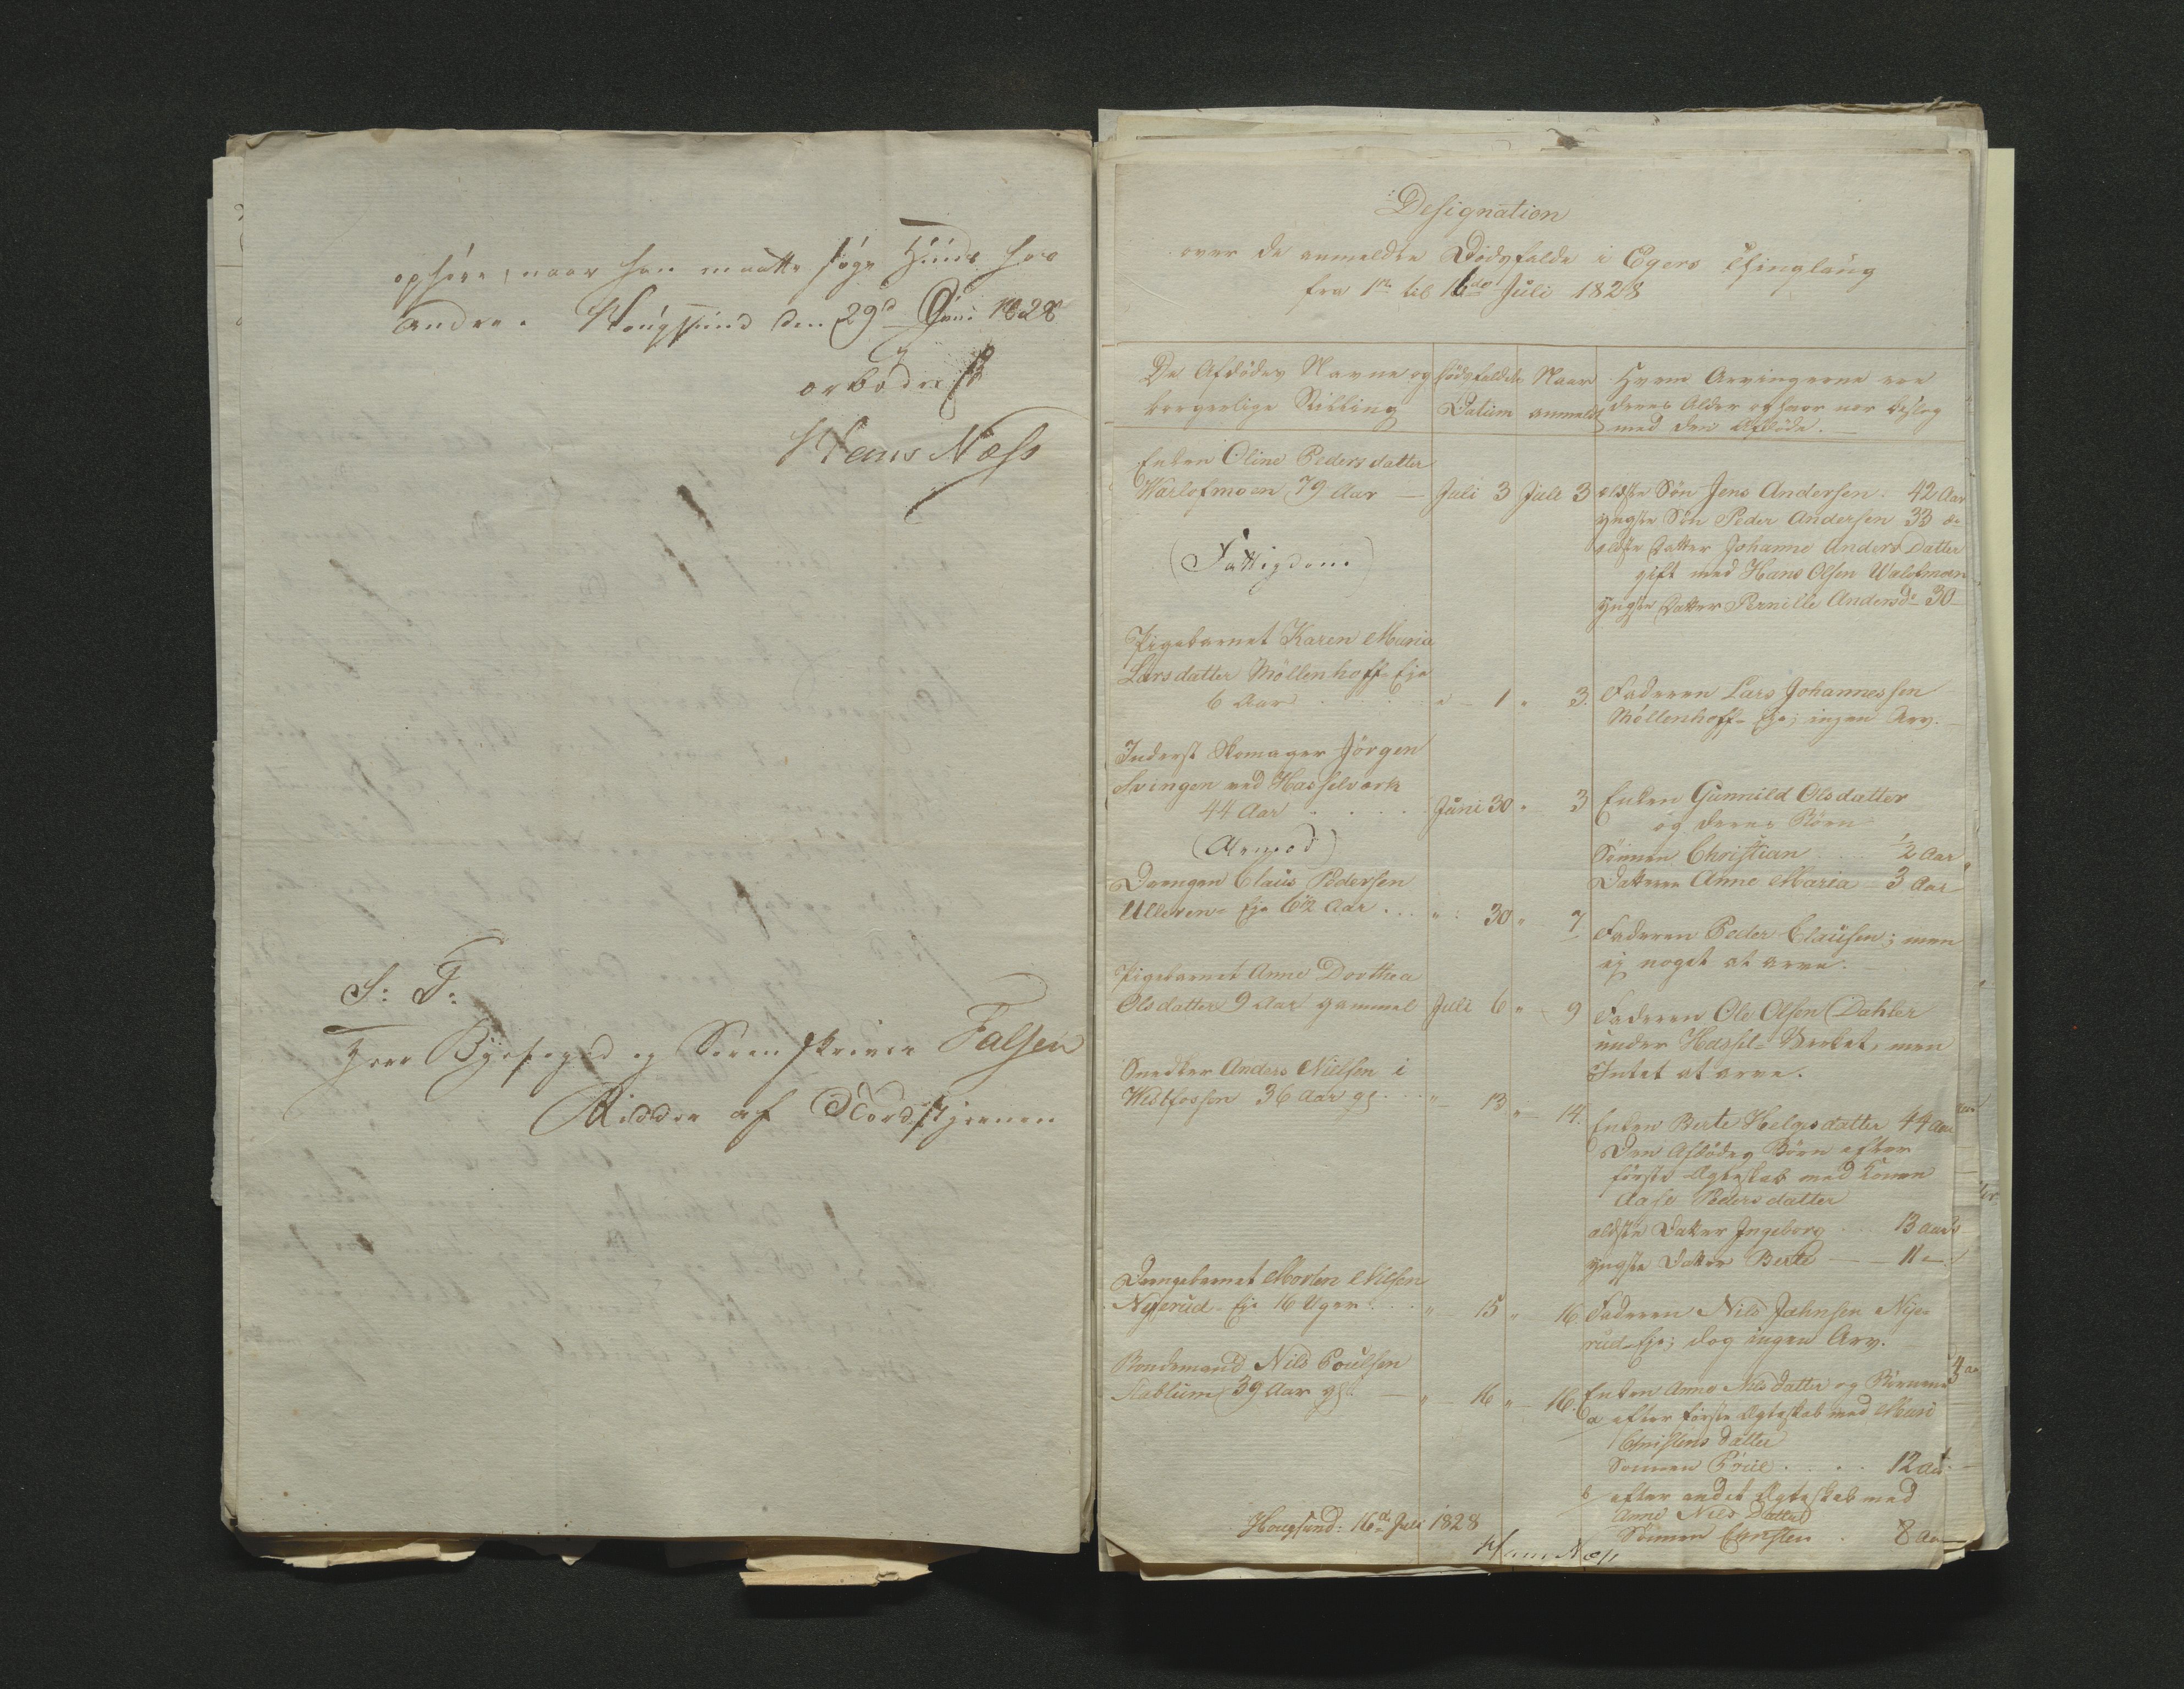 ophøre, naar han maatte søge Hiinds hos
andre. Hougsund den 29d Juni 1828
ærbødigst
Hans Næss
S: T:
Herr Byefoged og Sorenskriver Falsen
Ridder af Nordstjernen
Designation
over de anmeldte Dødsfalde i Egers Thinglaug
fra 1ste til 16de Juli 1828
De Afdødes Navne og
borgerlige Stilling
Dødsfaldets
Datum
Naar
anmeldt
Hvem Arvingerne ere
deres Alder og hvor nær beslæg
med den Afdøde.
Enken Oline Pedersdatter
Warlofmoen 79 Aar — Juli 3 Juli 3
(Fattigdom)
ældste Søn Jens Andersen 42 Aar
yngste Søn Peder Andersen 33 do
ældste Datter Johanne Anders Datter
gift med Hans Olsen Walofmoen
yngste Datter Pernille Andersdr 30
Pigebarnet Karen Maria
Larsdatter Møllenhoff Eje
6 Aar . . . " 1 " 3.
Faderen Lars Johannessen
Møllenhoff-Eje; ingen Arv.
Inderst Skomager Jörgen
Svingen ved Hasselværk
44 Aar . . . . Juni 30 " 3
(Armod)
Enken Gunnild Olsdatter
og deres Børn
Sønnen Christian ½ Aar
Datteren Anne Maria 3 Aar
Drengen Claus Pedersen
Ulleren-Eje 6½ Aar . . . " 30 " 7
Faderen Peder Clausen; men
ej noget at arve.
Pigebarnet Anne Dorthea
Olsdatter 9 Aar gammel Juli 6 " 9
Faderen Ole Olsen Dahler
under Hassel-Værket, men
Intet at arve.
Snedker Anders Nielsen i
Westfossen 36 Aar gl. . . " 13 " 14.
Enken Berte Helgesdatter 44 Aar
Den Afdødes Børn efter
første Ægteskab med Konen
Aase Pedersdatter
ældste Datter Ingeborg . . . 13 aar
yngste Datter Berte — 11 —
Drengebarnet Morten Nilsen
Nyerud-Eje 16 Uger . . . " 15 " 16.
Faderen Nils Johnsen Nye-
rud-Eje; dog ingen Arv.
Bondemand Nils Poulsen
Stablum 39 Aar gl. — " 16 " 16.
Enken Anne Nilsdatter og Børnene
a efter første Ægteskab med Mari
Christens datter
Sønnen Poul . . . . 12 Aar
b efter andet Ægteskab med
Anne Nils Datter
Sønnen Christen . 8 Aar
Hougsund: 16de Juli 1828
Hans Næss